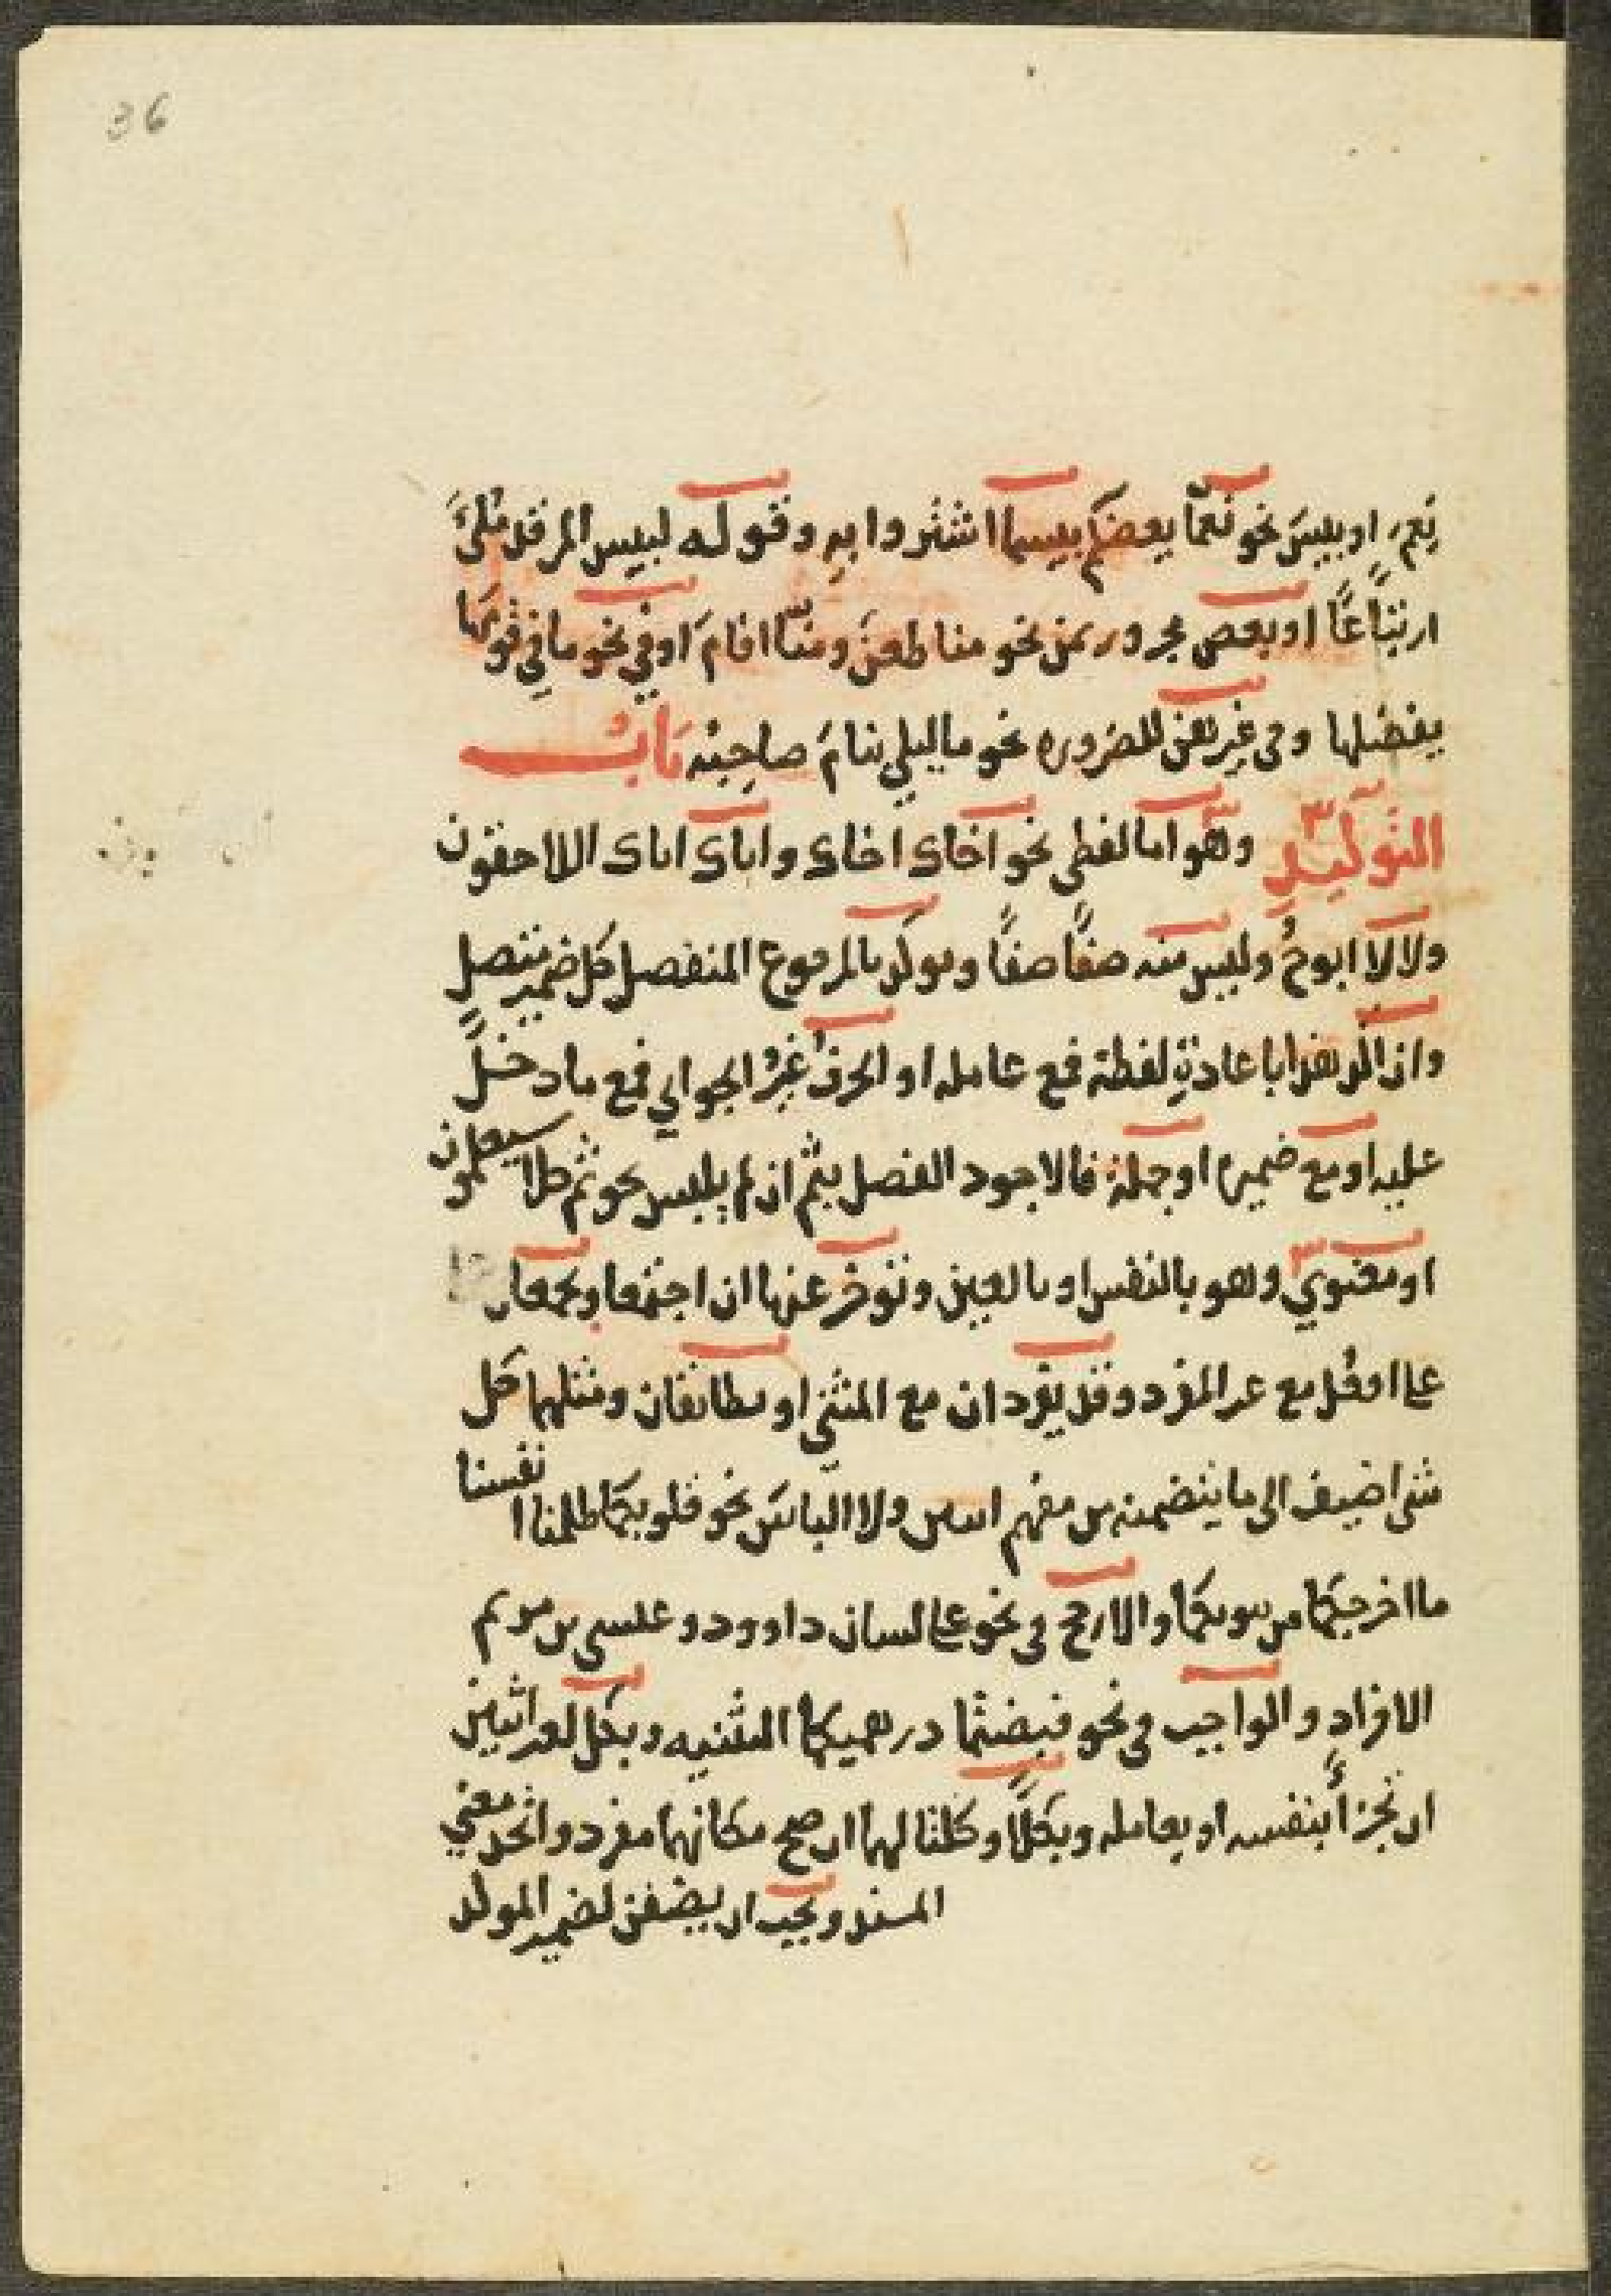 36
بنعم او ببيس نحو نعما يعضكم بيسما اشتروا به وقوله لبيس المرء قد ملئ
ارتياعا او بعض مجرور بمن نحو منا ظعن ومنا اقام او في نحو ما في قومها
يفضلها وفي غيرهن للضروره نحو ما ليلي بنام صاحبه باب
التوكيد وهو اما لفظي نحو اخاك اخاك واتاك اتاك اللاحقون
ولا لا ابوح وليس منه صفا صفا ويوكد بالمرفوع المنفصل كل ضمير متصل
وان اكد هذا باعادة لفظة فمع عامله او الحرف غير الجوابي فمع ما دخل
عليه او مع ضميره او جملة فالاجود الفصل بثم ان لم يلبس نحو ثم كلا سيعلمون
او معنوي وهو بالنفس او بالعين وتوخر عنها ان اجتمعا ويجمعان
على افعل مع غير المفرد وقد يفردان مع المثنى او يطابقان ومثلهما كل
مثنى اضيف الى ما يتضمنه من مفهم اثنين ولا الباس نحو قلوبكما ظلمنا انفسنا
ما اخرجكما من بيوتكما والارجح في نحو على لسان داوود وعيسى بن مريم
الافراد والواجب في نحو قبضتما درهميكما التثنيه وبكل لغير اثنين
ان تجزأ بنفسه او بعامله وبكلا وكلتا لهما ان صح مكانهما مفرد واتحد معنى
المسند ويجب ان يضفن لضمير الموكد